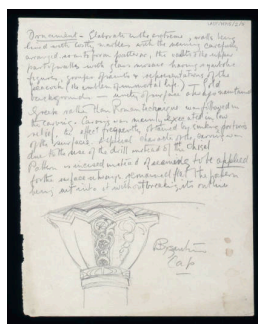 Ornament - Elaborate in the extreme, walls being
lined with costly marbles with the veining carefully
arranged so as to form patterns, the vaults & the upper
parts of walls with glass mosaic having symbolic
figures, groups of saints & representations of the
peacock (the emblem of immortal life) — Gold
background — unity of surface always maintained
Greek rather than Roman technique was followed in
the carving. Carving was mainly executed in low
relief, the effect frequently obtained by sinking portions
of the surface. A special character of the carving was
due to the use of the drill instead of the chisel
Pattern is incised instead of seeming to be applied
for the surface always remained flat the pattern
being cut into it without breaking its outline
Byzantine
Cap